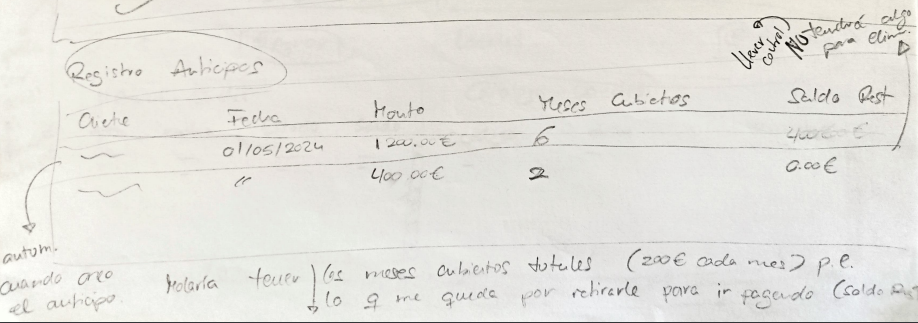 Llevar control
NO tendrá algo
para elim.
Registro Anticipos
Cliente Fecha Monto Meses Cubiertos Saldo Rest
01/05/2024 1200.00€ 6 400.00€
" 400.00€ 2 0.00€
autom.
cuando creo
el anticipo.
Molaría tener los meses cubiertos totales (200€ cada mes) p.e.
lo q me queda por retirarle para ir pagando (Saldo Rest